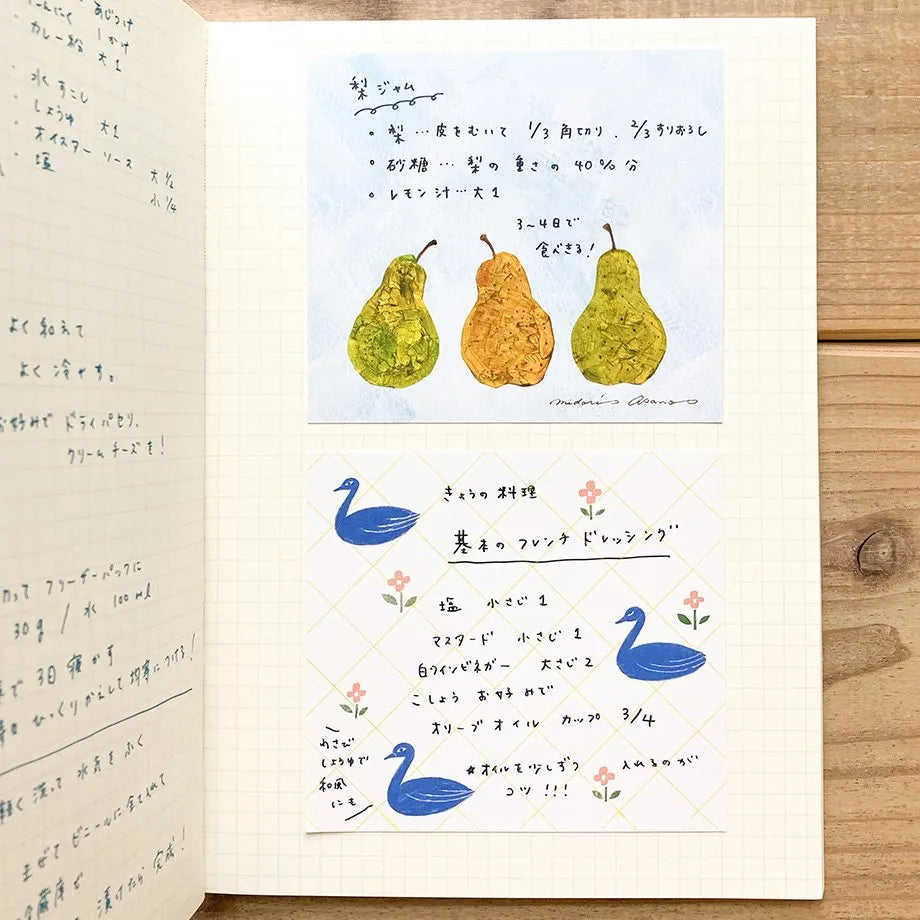 あじつけ
カレー粉 大1
水 すこし
しょうゆ 大1
オイスター ソース 大1/2
塩 小1/4
よく和えて
よく冷やす。
お好みで ドライパセリ、
クリームチーズを!
フリーザーパックに
30g / 水 100ml
で 3日 寝かす
ひっくりかえして 均等につける!
軽く 洗って 水気を ふく
まぜて ビニールに 全て入れて
冷蔵庫で
漬けたら 完成!
梨 ジャム
・梨 … 皮をむいて 1/3 角切り、2/3 すりおろし
・砂糖 … 梨の 重さの 40% 分
・レモン汁 … 大1
3~4日で
食べきる!
midori asano
きょうの 料理
基本の フレンチ ドレッシング
塩 小さじ 1
マスタード 小さじ 1
白ワインビネガー 大さじ 2
こしょう お好みで
オリーブ オイル カップ 3/4
わさび
しょうゆで
和風
にも
☆オイルを少しずつ 入れるのが
コツ !!!